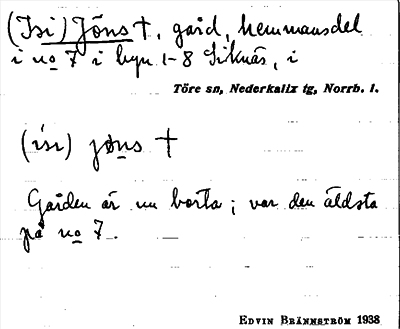 (Isi) Jöns †, gård, hemmansdel
i no 7 i byn 1-8 Siknäs, i
Töre sn, Nederkalix tg, Norrb. l.
(isi) jøns †
Gården är nu borta; var den äldsta
på no 7.
EDVIN BRÄNNSTRÖM 1938